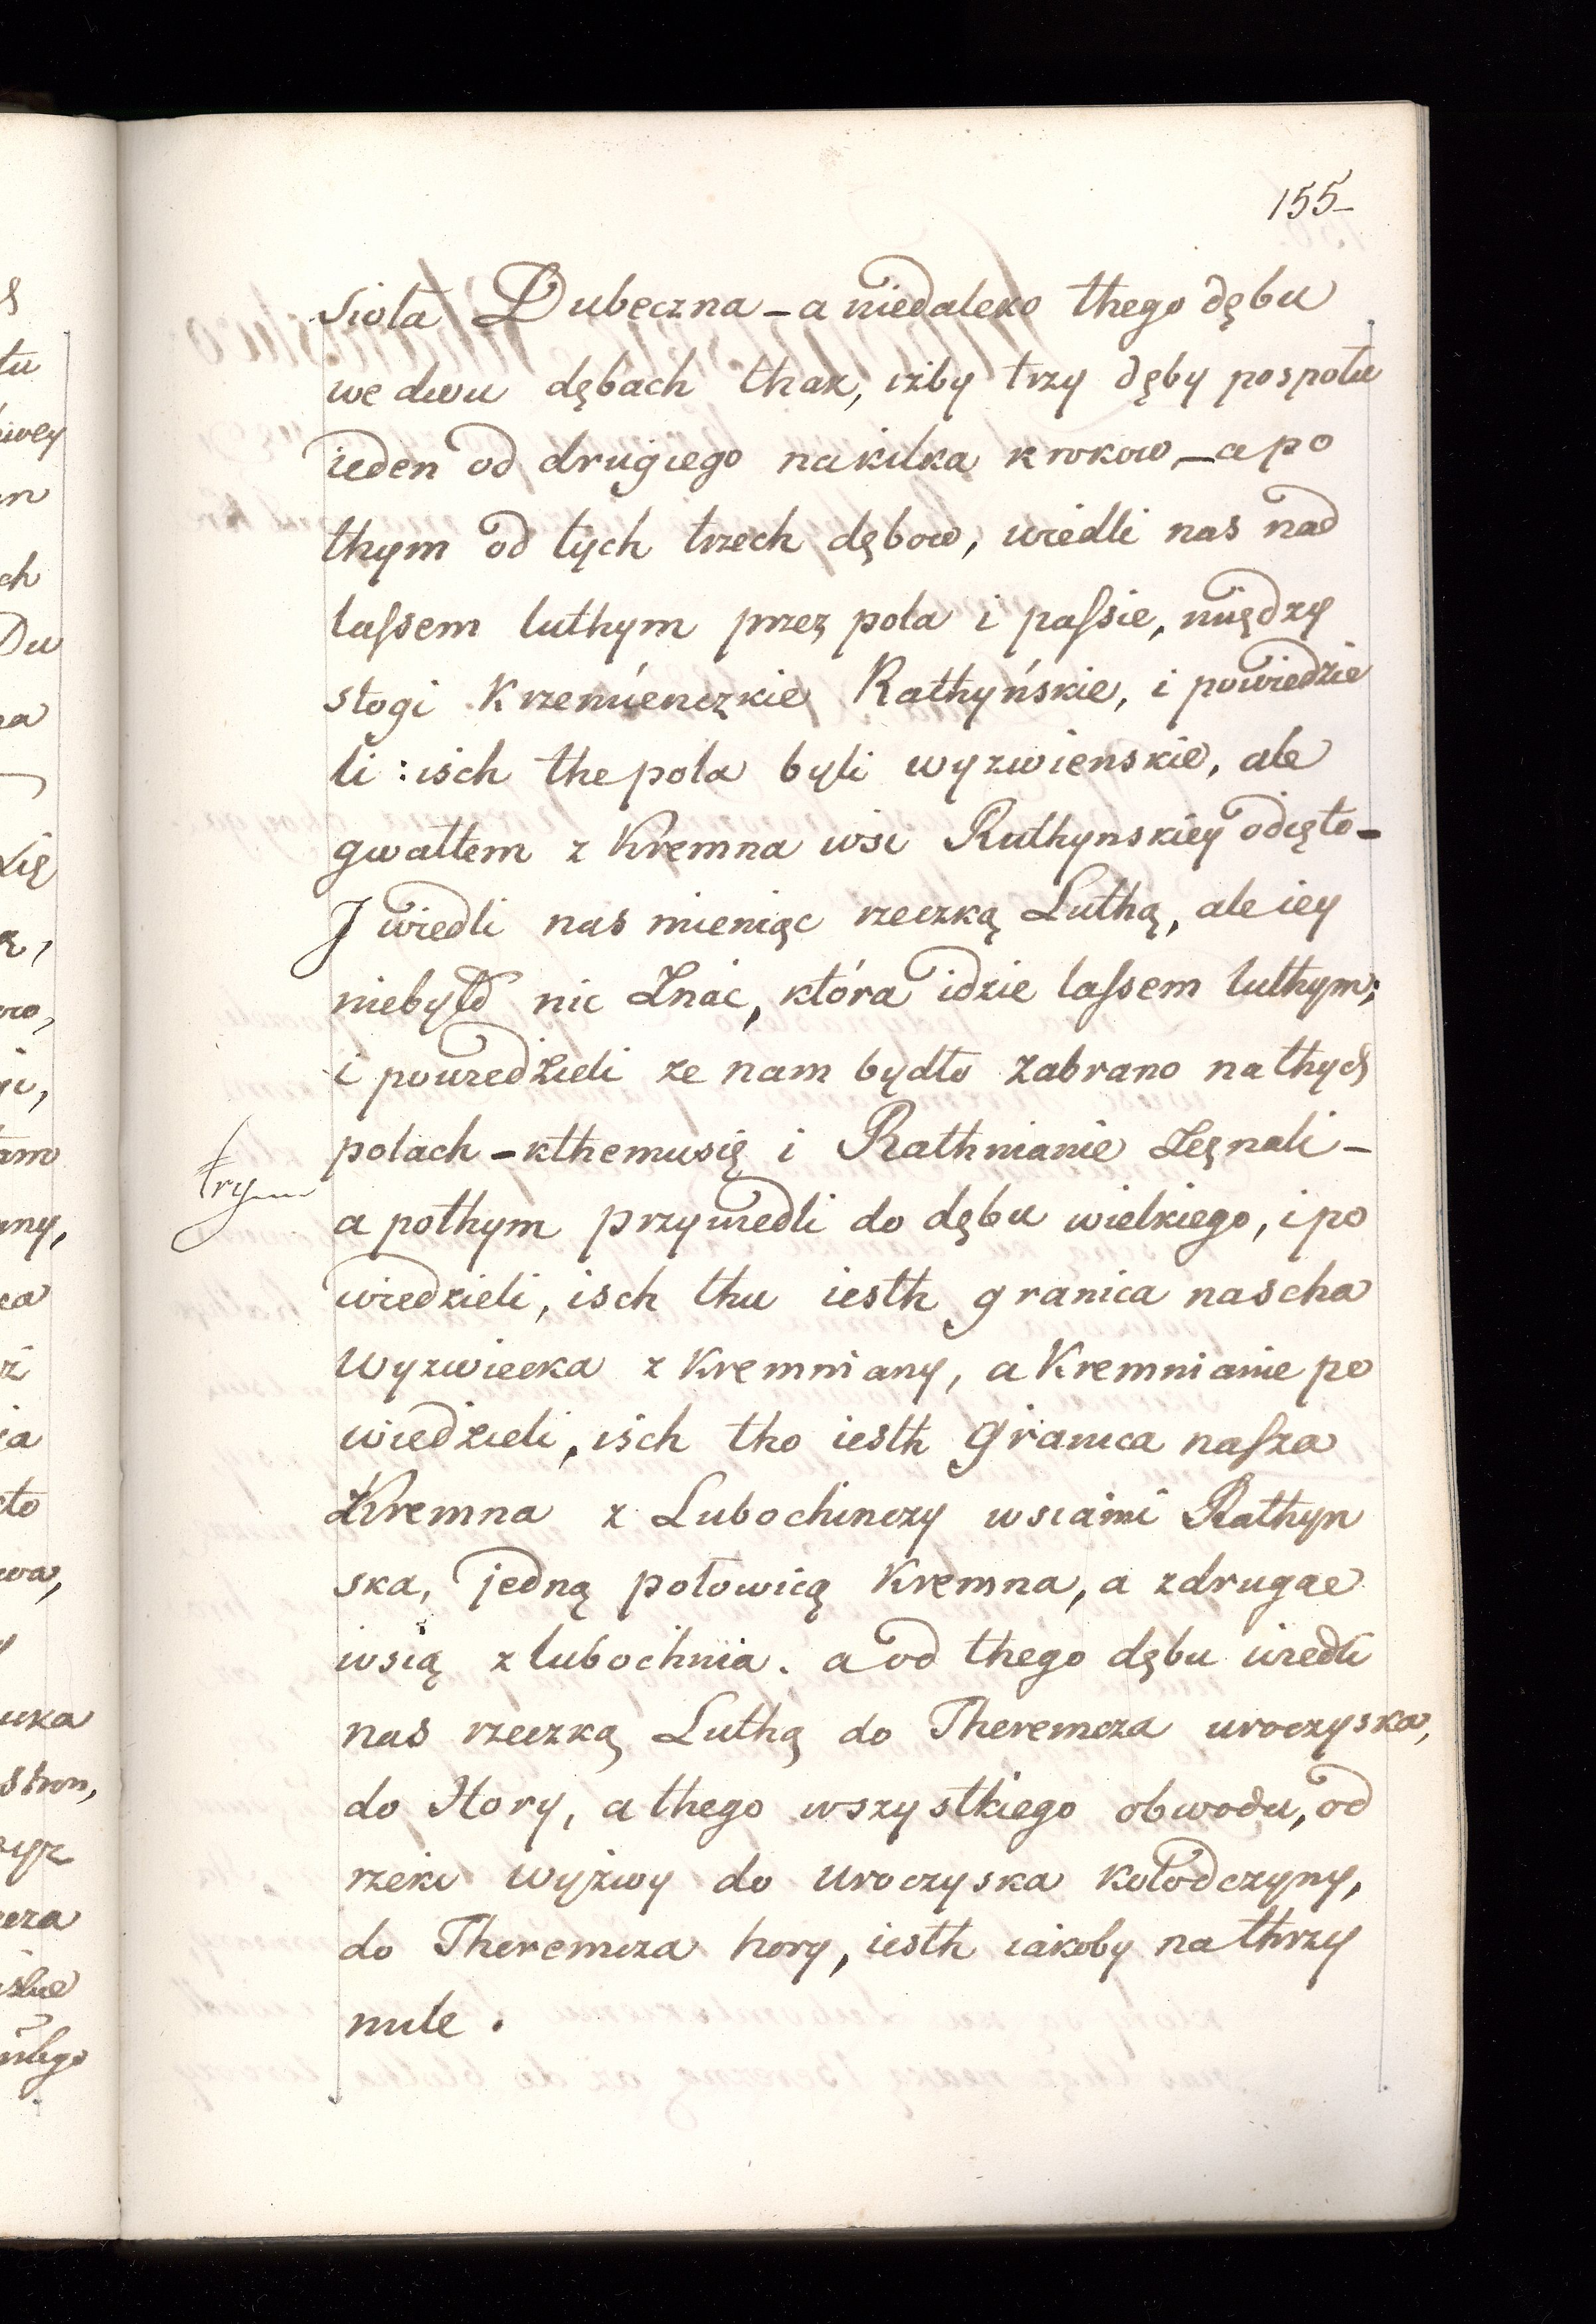 155
sioła Dubeczna – a niedaleko thego dębu
we dwu dębach thak, iżby trzy dęby pospołu
ieden od drugiego na kilka krokow – a po
thym od tych trzech dębow, wiedli nas nad
lassem luthym przez pola i passie, między
stogi Krzemienczkie Rathyńskie, i powiedzie
li : isch the pola byli wyzwienskie, ale
gwałtem z Kremna wsi Rathynskiey odięto –
I wiedli nas mieniąc rzeczką Luthą, ale iey
niebyło nic Znać, która idzie lassem luthym;
i powiedzieli ze nam bydło zabrano na thych
polach – kthemu się i Rathnianie Zęgnali –
a pothym przywiedli do dębu wielkiego, i po
wiedzieli, isch thu iesth granica nascha
Wyzwiecka z Kremniany, a Kremnianie po
wiedzieli, isch tho iesth granica nasza
Kremna z Lubochinczy wsiami Rathyn
ska, jedną połowicą Kremna, a zdrugae
wsią z lubochnia. a od thego dębu wiedli
nas rzeczką Luthą do Theremcza uroczyska,
do Hory, a thego wszystkiego obwodu, od
rzeki Wyżwy do uroczyska kołodczyny,
do Theremcza hory, iesth iakoby na thrzy
mile .